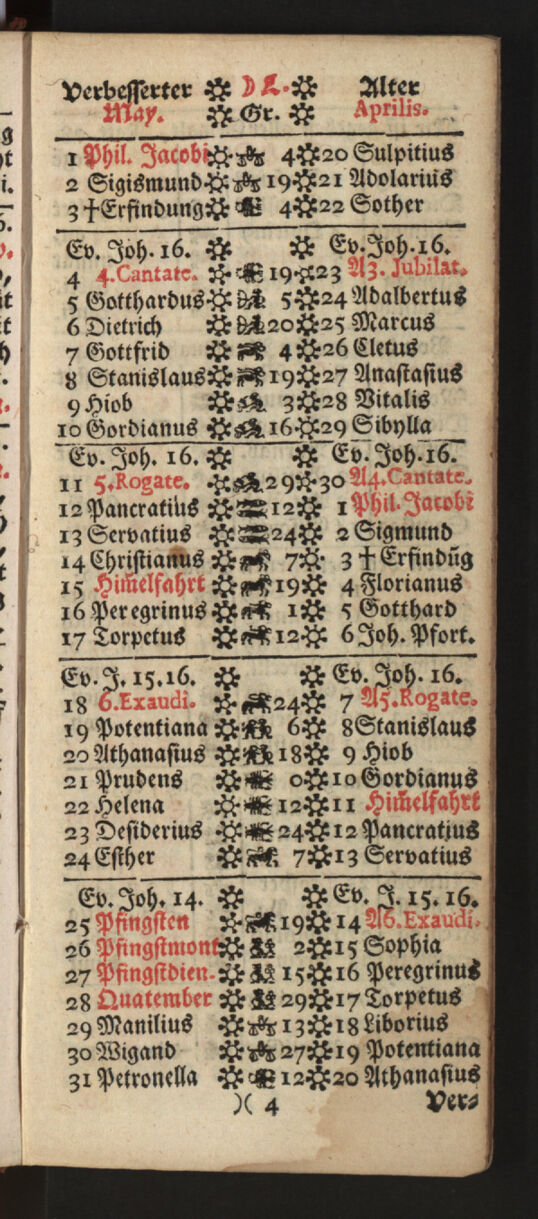 Verbesserter D L. Alter
May. Gr. Aprilis.
1 Phil. Jacobi 4 20 Sulpitius
2 Sigismund 19 21 Adolarius
3 †Erfindung 4 22 Sother
Ev. Joh. 16. Ev. Joh. 16.
4 4. Cantate. 19 23 A3. Jubilat.
5 Gotthardus 5 24 Adalbertus
6 Dietrich 20 25 Marcus
7 Gottfrid 4 26 Cletus
8 Stanislaus 19 27 Anastasius
9 Hiob 3 28 Vitalis
10 Gordianus 16 29 Sibylla
Ev. Joh. 16. Ev. Joh. 16.
11 5. Rogate. 29 30 A4. Cantate.
12 Pancratius 12 1 Phil. Jacobi
13 Servatius 24 2 Sigmund
14 Christianus 7 3 † Erfindūg
15 Him̄elfahrt 19 4 Florianus
16 Peregrinus 1 5 Gotthard
17 Torpetus 12 6 Joh. Pfort.
Ev. J. 15. 16. Ev. Joh. 16.
18 6. Exaudi. 24 7 A5. Rogate.
19 Potentiana 6 8 Stanislaus
20 Athanasius 18 9 Hiob
21 Prudens 0 10 Gordianus
22 Helena 12 11 Him̄elfahrt
23 Desiderius 24 12 Pancratius
24 Esther 7 13 Servatius
Ev. Joh. 14. Ev. J. 15. 16.
25 Pfingsten 19 14 A6. Exaudi.
26 Pfingstmont 2 15 Sophia
27 Pfingstdien. 15 16 Peregrinus
28 Quatember 29 17 Torpetus
29 Manilius 13 18 Liborius
30 Wigand 27 19 Potentiana
31 Petronella 12 20 Athanasius
)( 4 Ver-